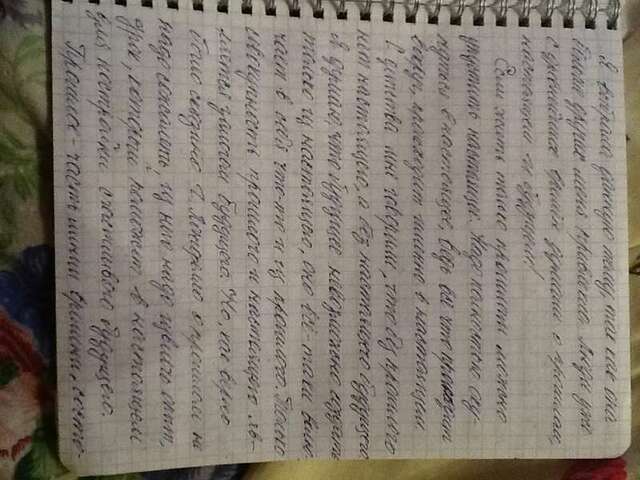 Я выбрала данную тему, так как она
больше других меня привлекла. Люди уже
с древнейших времён думали о прошлом,
настоящем и будущем!
Если жить только прошлым можно
упустить настоящее. Надо полностью оку-
наться в настоящее, ведь всё что происходит
вокруг, происходит именно в настоящем.
С детства мне говорили, что без прошлого
нет настоящего, а без настоящего будущего.
Я думаю, что будущее невозможно создать
только из настоящего, оно всё-таки вклю-
чает в себя что-то и из прошлого. Только
совокупность прошлого и настоящего яв-
ляется залогом будущего. Но, как верно
было сказано Г. Лонгфелло о прошлом не
надо сожалеть, из него надо извлечь опыт,
урок, который поможет в настоящем
для постройки счастливого будущего.
Прошлое - часть линии времени, состо-